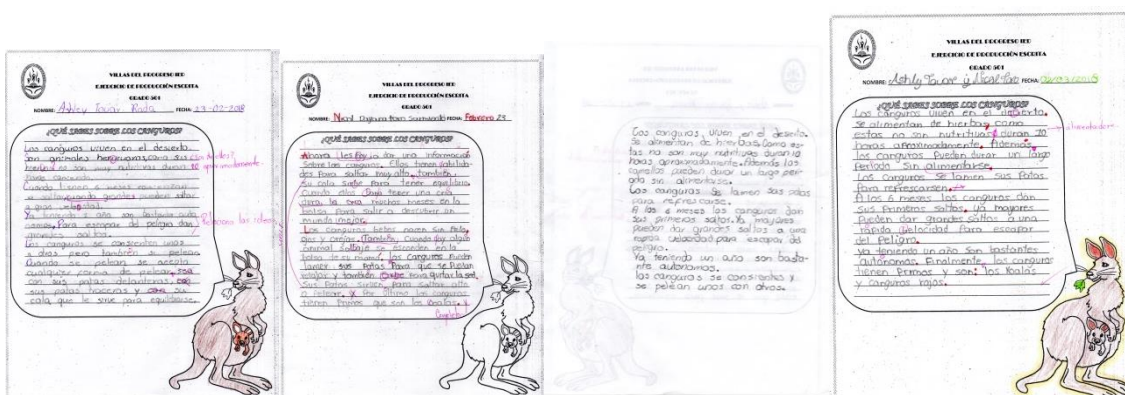 VILLAS DEL PROGRESO IED
EJERCICIO DE PRODUCCIÓN ESCRITA
GRADO 501
NOMBRE: Ashley Tovar Roda FECHA: 23-02-2018
¿QUÉ SABES SOBRE LOS CANGUROS?
Los canguros viven en el desierto.
son animales para sus
no son muy nutritivas duran 10
horas
Cuando tienen 6 meses comienzan
a saltar, cuando grandes pueden saltar
a gran velocidad.
Ya teniendo 1 año son bastante auto
nomas. Para escapar del peligro dan
grandes saltos.
Los canguros se consienten unos
a otros pero también se pelean
Cuando se pelean se acepta
cualquier forma de pelear, sea
con sus patas delanteras, con
sus patas traseras y con su
cola que le sirve para equilibrarse.
aproximadamente
Relaciona las ideas
VILLAS DEL PROGRESO IED
EJERCICIO DE PRODUCCIÓN ESCRITA
GRADO 501
NOMBRE: Nicol FECHA: Febrero 23
¿QUÉ SABES SOBRE LOS CANGUROS?
Ahora les voy a dar una información
Sobre los canguros. Ellos tienen
para saltar muy alto, también
Su cola sirve para tener equilibrio.
Cuando ellos van a tener una cria
dura la cria muchos meses en la
bolsa Para salir a descubrir un
mundo mejor.
Los canguros bebes nacen sin
y orejas. También, Cuando hay algún
animal salvaje se esconden en la
bolsa de su mamá, los canguros pueden
lamer sus patas Para que se puedan
y también para quitar la sed.
Sus Patas sirven Para saltar alto
o pelear, y Por último los canguros
tienen Primos que son los Koalas y
Los canguros, viven en el desierto.
Se alimentan de hierbas. Como es-
tas no son muy nutritivas duran 10
horas aproximadamente. Además los
camellos pueden durar un largo peri-
odo sin alimentarse.
Los canguros se lamen sus patas
para refrescarse.
A los 6 meses los canguros dan
sus primeros saltos. Ya mayores
pueden dar grandes saltos a una
rapida velocidad para escapar del
peligro.
Ya teniendo un año son basta-
nte autonomos.
los canguros se consientes y
se pelean unos con otros.
VILLAS DEL PROGRESO IED
EJERCICIO DE PRODUCCIÓN ESCRITA
GRADO 501
NOMBRE: Ashly Tovar y Nicol FECHA: 02/03/2018
¿QUÉ SABES SOBRE LOS CANGUROS?
Los canguros viven en el desierto.
Se alimentan de hierbas, como
estas no son nutritivas, duran 10
horas aproximadamente. Además,
los canguros Pueden durar un largo
Período Sin alimentarse.
Los canguros Se lamen sus Patas
Para refrescarsen.
A los 6 meses los canguros dan
sus Primeros saltos, ya mayores
Pueden dar grandes saltos a una
rápida velocidad Para escapar
del Peligro.
ya teniendo un año. Son bastantes
autónomas. Finalmente, los canguros
tienen Primos y son: los Koalas
y canguros rojos.